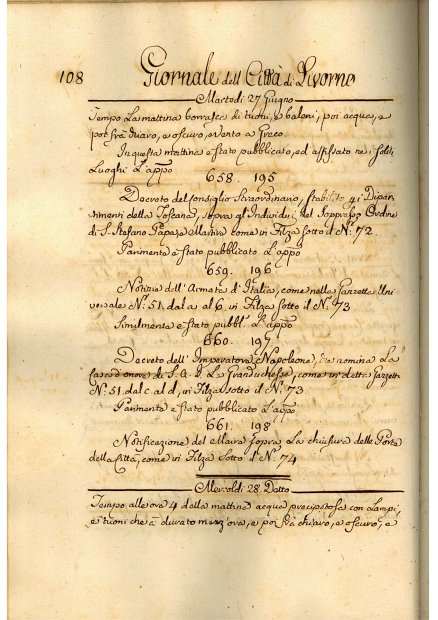 108 Giornale dell Città di Livorno
Martedì 27 Giugno
Tempo La mattina borrasca di tuoni, e baleni, poi acqua, e
poi frà chiaro, e oscuro, e vento a Greco.
In questa mattina è stato pubblicato, ed affissato ne i soliti
Luoghi L'appo
658. 195
Decreto del Consiglio Straordinario, stabilito p i Dipar-
timenti della Toscana, sopra gl'Individui del Soppresso Ordine
di S. Stefano Papa e Martire come in Filza sotto il N.° 72
Parimente è stato pubblicato L'appo
659. 196
Notizie dell'Armata d'Italia, come nella Gazzetta Uni
versale N.° 51. dal a al 6. in Filza sotto il N.° 73
Similmente è stato pubbl. L'appo
660. 197
Decreto dell'Imperatore Napoleone, che nomina La
Casa d'onore di S. A. I. La Granduchessa, come in detta Gazzetta
N.° 51. dal c. al d, in Filza sotto il N.° 73.
Parimente è stato pubblicato L'appo
661. 198
Notificazione del Maire sopra La chiusura delle Porte
della Città, come in Filza sotto il N.° 74
Mercoldì 28 Detto
Tempo alle ore 4 della mattina acqua precipitosa con Lampi,
e tuoni che à durato mezz'ora, e poi frà chiaro, e oscuro, e